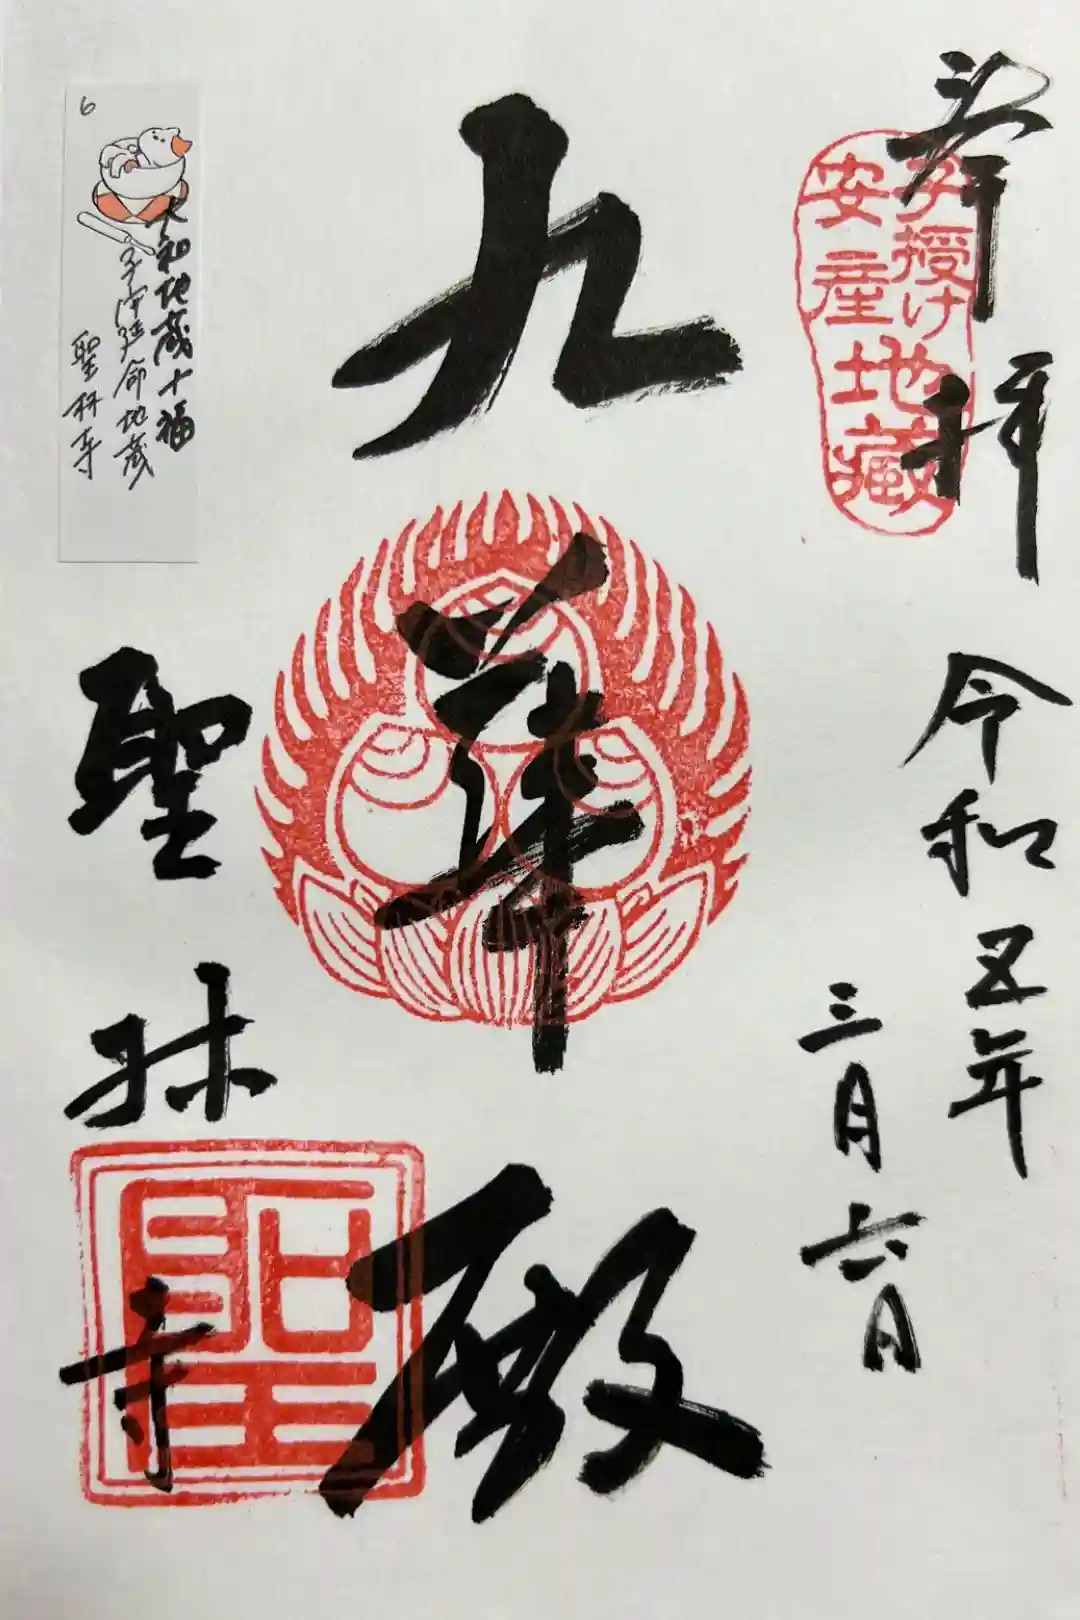 奉拝
子授け
安産
地蔵
令和五年
三月六日
九華殿
聖林寺
聖
6
大和地蔵十福
子安延命地蔵
聖林寺